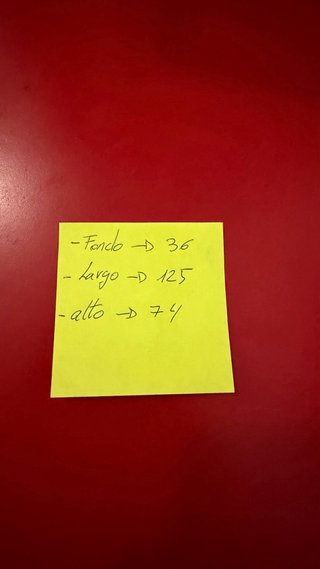 - Fondo → 36
- Largo → 125
- alto → 74